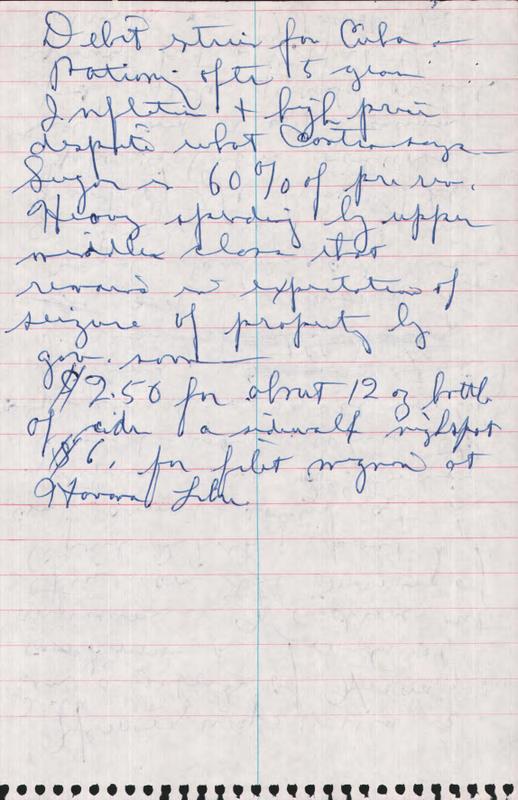 Debit side for Cuba -
Rationing after 5 years
Inflation + high prices
despite what Castro says
Sugar is 60% of pre rev.
Heavy spending by upper
middle class that
remains in expectation of
seizure of property by
gov. soon
$2.50 for about 12 oz bottle
of cider a sidewalk nightspot
$6. for filet mignon at
Havana Libre